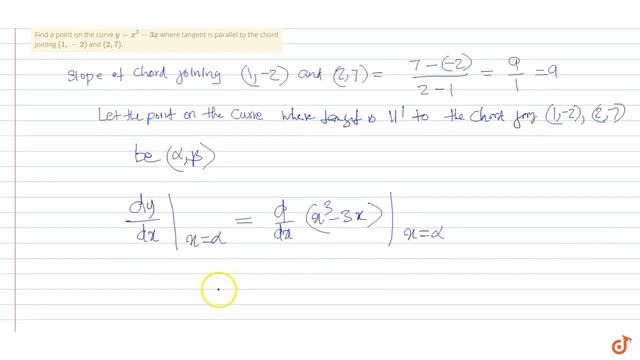 Find a point on the curve y = x³ − 3x where tangent is parallel to the chord
joining (1, − 2) and (2, 7).
slope of chord joining (1,-2) and (2,7) = 7-(-2)/2-1 = 9/1 = 9
Let the point on the curve where tangent is 11¹ to the chord (1,-2), (2,7)
be (α,β)
dy/dx |x=α = d/dx (x³-3x) |x=α
doubtnut